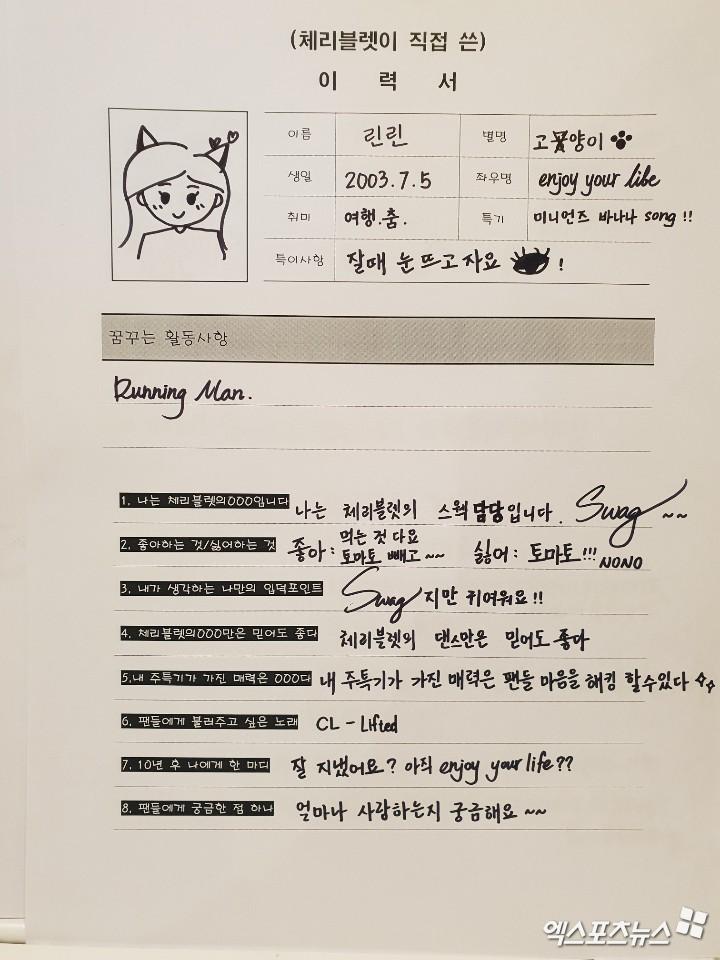 (체리블렛이 직접 쓴)
이 력 서
이름 린린 별명 고양이
생일 2003.7.5 좌우명 enjoy your libe
취미 여행.춤. 특기 미니언즈 바나나 song !!
특이사항 잘때 눈 뜨고 자요 !
꿈꾸는 활동사항
Running Man.
1. 나는 체리블렛의OOO입니다 나는 체리블렛의 스웩 담당입니다. Swag ~~
2. 좋아하는 것/싫어하는 것 좋아: 먹는 것 다요 토마토 빼고 ~~ 싫어: 토마토!!! NONO
3. 내가 생각하는 나만의 입덕포인트 Swag지만 귀여워요!!
4. 체리블렛의OOO만은 믿어도 좋다 체리블렛의 댄스만은 믿어도 좋아
5.내 주특기가 가진 매력은 OOO다 내 주특기가 가진 매력은 팬들 마음을 해킹 할수있다
6. 팬들에게 불러주고 싶은 노래 CL - Lifted
7. 10년 후 나에게 한 마디 잘 지냈어요? 아직 enjoy your life??
8. 팬들에게 궁금한 점 하나 얼마나 사랑하는지 궁금해요 ~~
엑스포츠뉴스